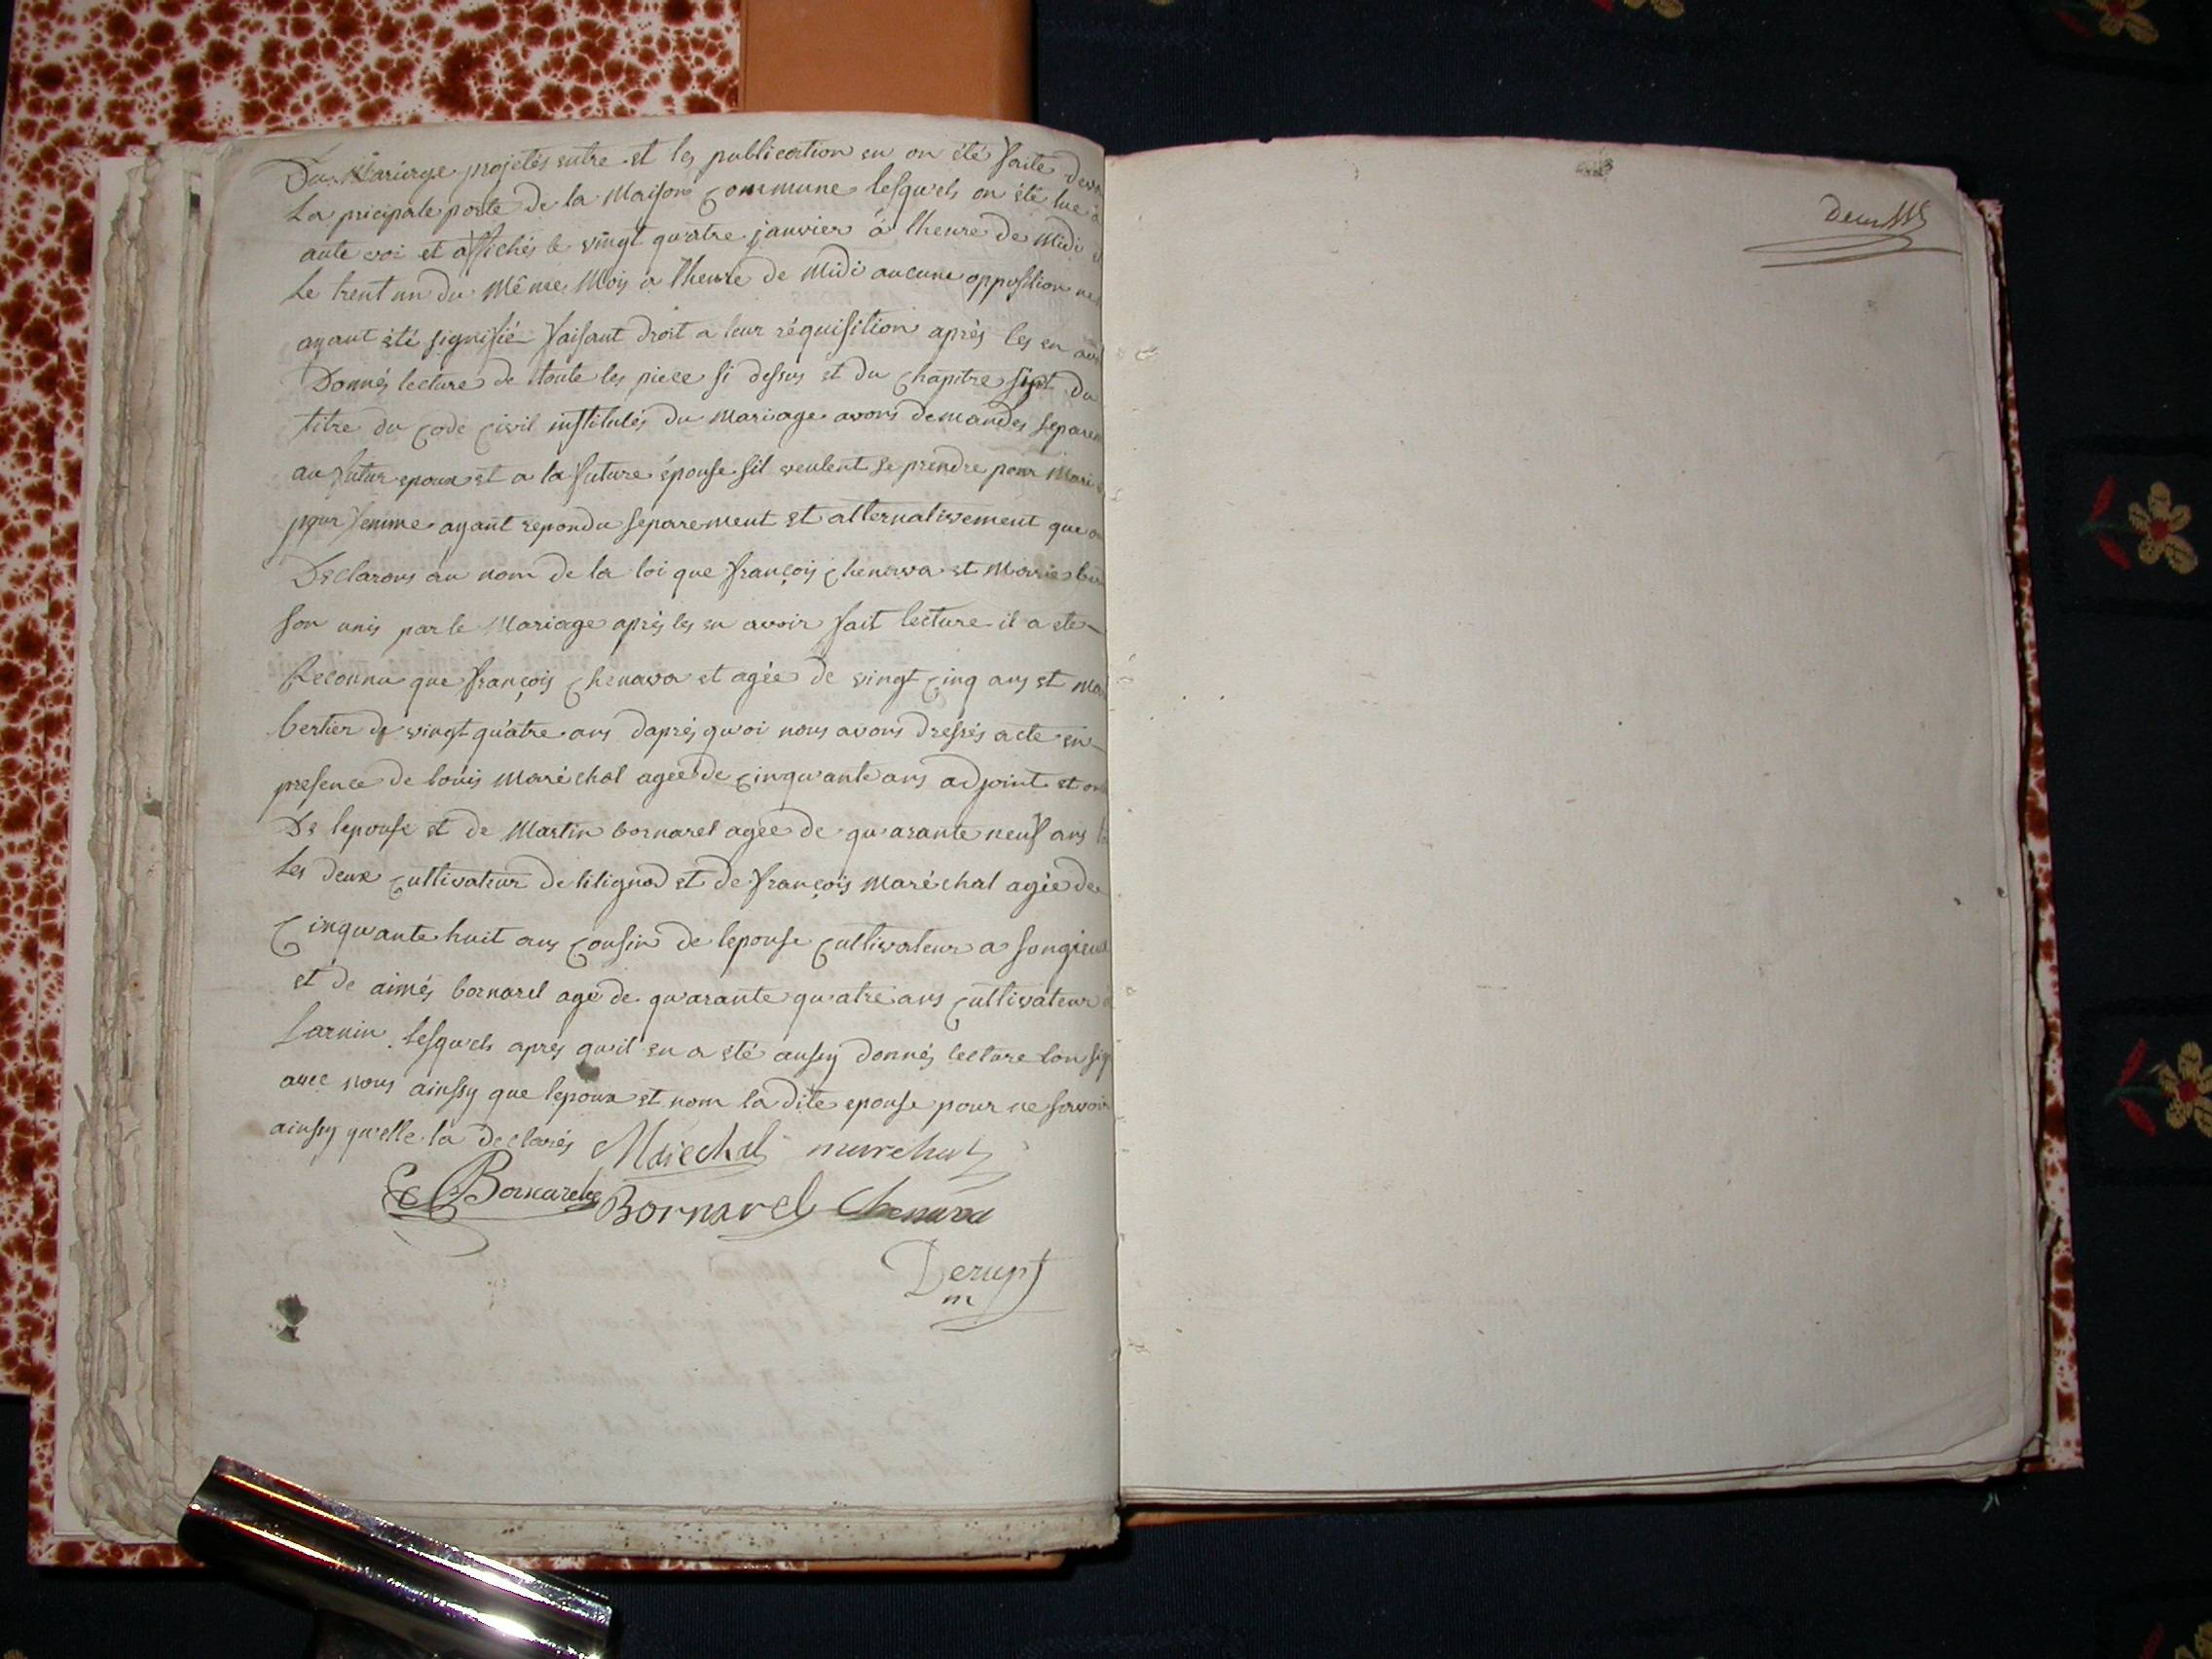 Du Mariage projetés entre et les publication en on été faite
La pricipale porte de la Maison Commune lesquels on été lue a
aute voi et affichés le vingt quatre janvier à lheure de Midi
Le trent un du Même Mois a lheure de Midi aucune opposition
ayant été signifié faisant droit a leur réquisition après les en
Donnés lecture de toute les piece si dessus et du Chapitre sixt Du
titre du Code Civil institulés du Mariage avons demandés
au futur epoux et a la future épouse sil veulent se prendre pour Mari
pour femme ayant repondu separement et alternativement que
Declarons au nom de la loi que françois Chenava et Marie
son unis par le Mariage après les en avoir fait lecture il a ete
Reconnu que françois Chenava et agée de vingt Cinq ans et
bertier de vingt quatre ans daprés quoi nous avons Dressés acte en
presence de louis Maréchal agée de Cinquante ans adjoint et
De lepouse et de Martin bornarel agée de quarante neuf ans
Les deux Cultivateur de lilignod et de françois Maréchal agée de
Cinquante huit ans Cousin de lepouse Cultivateur a Songieu
et de aimés bornarel agé de quarante quatre ans Cultivateur
Larnin lesquels après quil en a été aussy donnés lecture lon
avec nous ainssy que lepoux et nom la dite epouse pour ne savoir
ainssy quelle la declarés Maréchal marchal
Bornarel Bornarel Chenava
Derupt
m